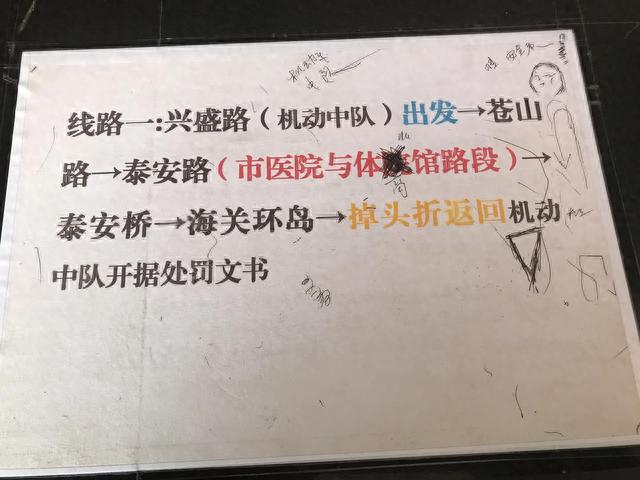 机动中队
线路一:兴盛路（机动中队）出发→苍山
路→泰安路（市医院与体馆路段）→
泰安桥→海关环岛→掉头折返回机动
中队开据处罚文书